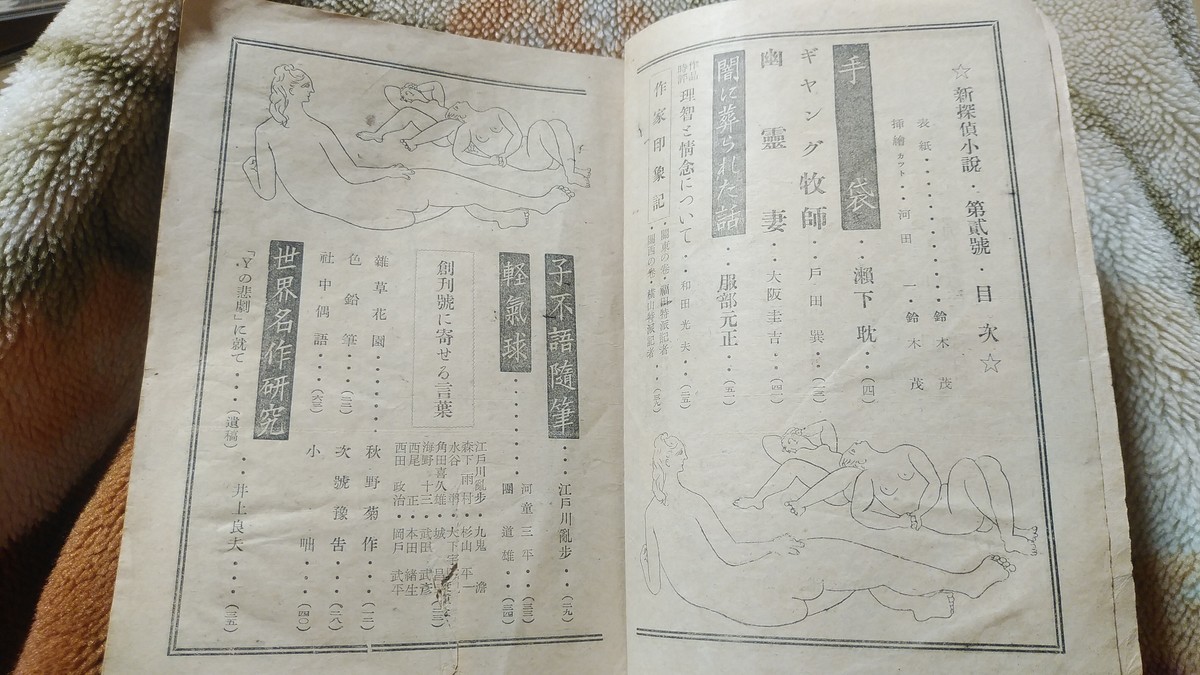 ☆新探偵小說・第貳號・目次☆
表紙・・・・・・・・・鈴木茂
挿繪カツト・・河田一・鈴木茂
手袋・・瀨下耽・・(四)
ギヤング牧師・戶田巽・・(二三)
幽靈妻・大阪圭吉・・(四一)
闇に葬られた話・・服部元正・・(五一)
作品時評 理智と情念について・・・和田光夫・・(二五)
作家印象記・關東の卷・福田特派記者・
・關西の卷・橫山特派記者・・(三九)
子不語隨筆・・・・江戶川亂步・・・(二九)
輕氣球・・・・・・・河童三平・・・(三三)
團道雄・・・(三四)
創刊號に寄せる言葉
江戶川亂步・九鬼澹
森下雨村・杉山平一
水谷準・大下宇陀兒
角田喜久雄・城昌幸
海野十三・武田武彥
西尾正・本田緖生
西田政治・岡戶武平
雜草花園・・・・・・秋野菊作・・(一二)
色鉛筆・・(二二) 次號豫吿・・(二八)
社中偶語・・(六三) 小咄・・・(四〇)
世界名作硏究
「Yの悲劇」に就て・・・・(遺稿)・・井上良夫・・・(三五)